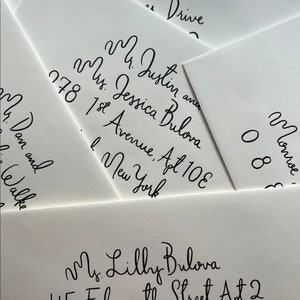 Drive
Mr. Justin and
Mrs. Jessica Bulova
278 1st Avenue, Apt 10E
New York
Mr. Dan and
Walke
Monroe
0 8
Ms Lilly Bulova
Street Apt 2